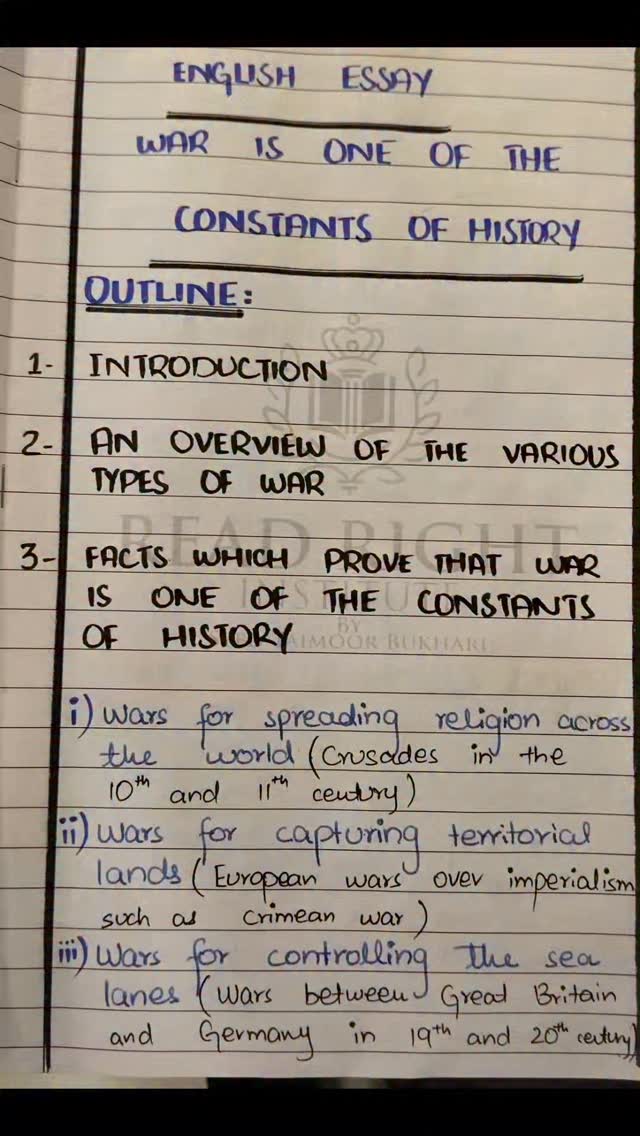 ENGLISH ESSAY
WAR IS ONE OF THE
CONSTANTS OF HISTORY
OUTLINE:
1- INTRODUCTION
2- AN OVERVIEW OF THE VARIOUS
TYPES OF WAR
READ RIGHT
3- FACTS WHICH PROVE THAT WAR
INSTITUTE
IS ONE OF THE CONSTANTS
BY
OF HISTORY
BUKHARI
i) Wars for spreading religion across
the world (Crusades in the
10th and 11th century)
ii) Wars for capturing territorial
lands (European wars over imperialism
such as Crimean war)
iii) Wars for controlling the sea
lanes (Wars between Great Britain
and Germany in 19th and 20th century)